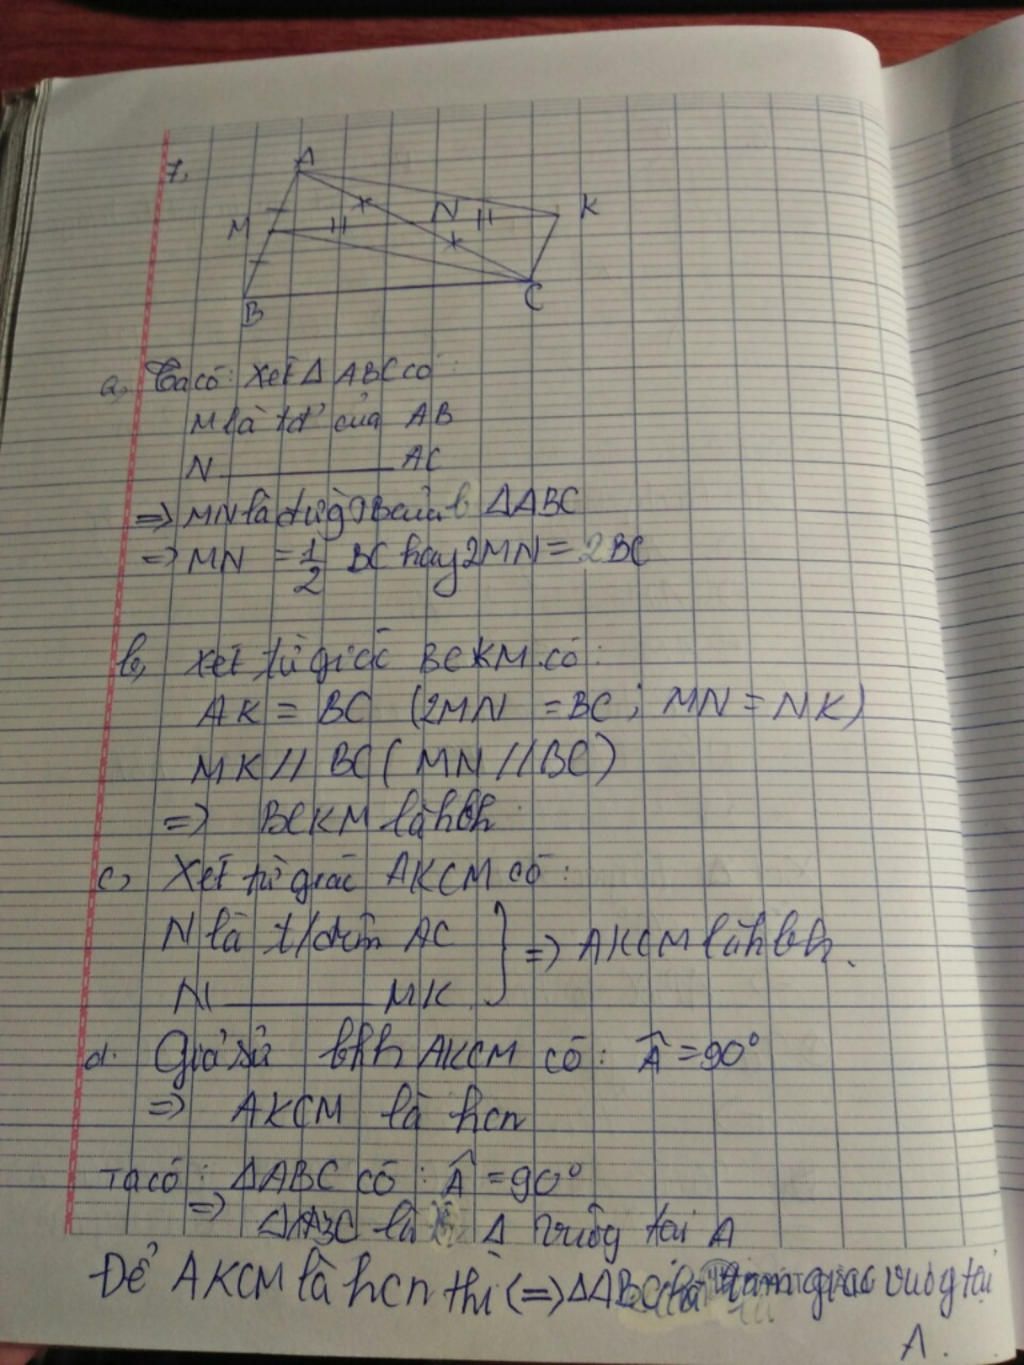 7,
A
M
N
K
B
C
a, Ta có: Xét Δ ABC có:
M là tđ' của AB
N ———— AC
=> MN là đường TB của Δ ABC
=> MN = 1/2 BC hay 2MN = 2BC
b, Xét tứ giác BCKM có:
AK = BC (2MN = BC; MN = NK)
MK // BC (MN // BC)
=> BCKM là hbh
c, Xét tứ giác AKCM có:
N là t/điểm AC
N ———— MK
} => AKCM là hbh.
d. Giả sử bhh AKCM có: Â = 90°
=> AKCM là hcn
Ta có: ΔABC có: Â = 90°
=> ΔABC là Δ vuông tại A
Để AKCM là hcn thì (=> ΔABC là tam giác vuông tại
A.